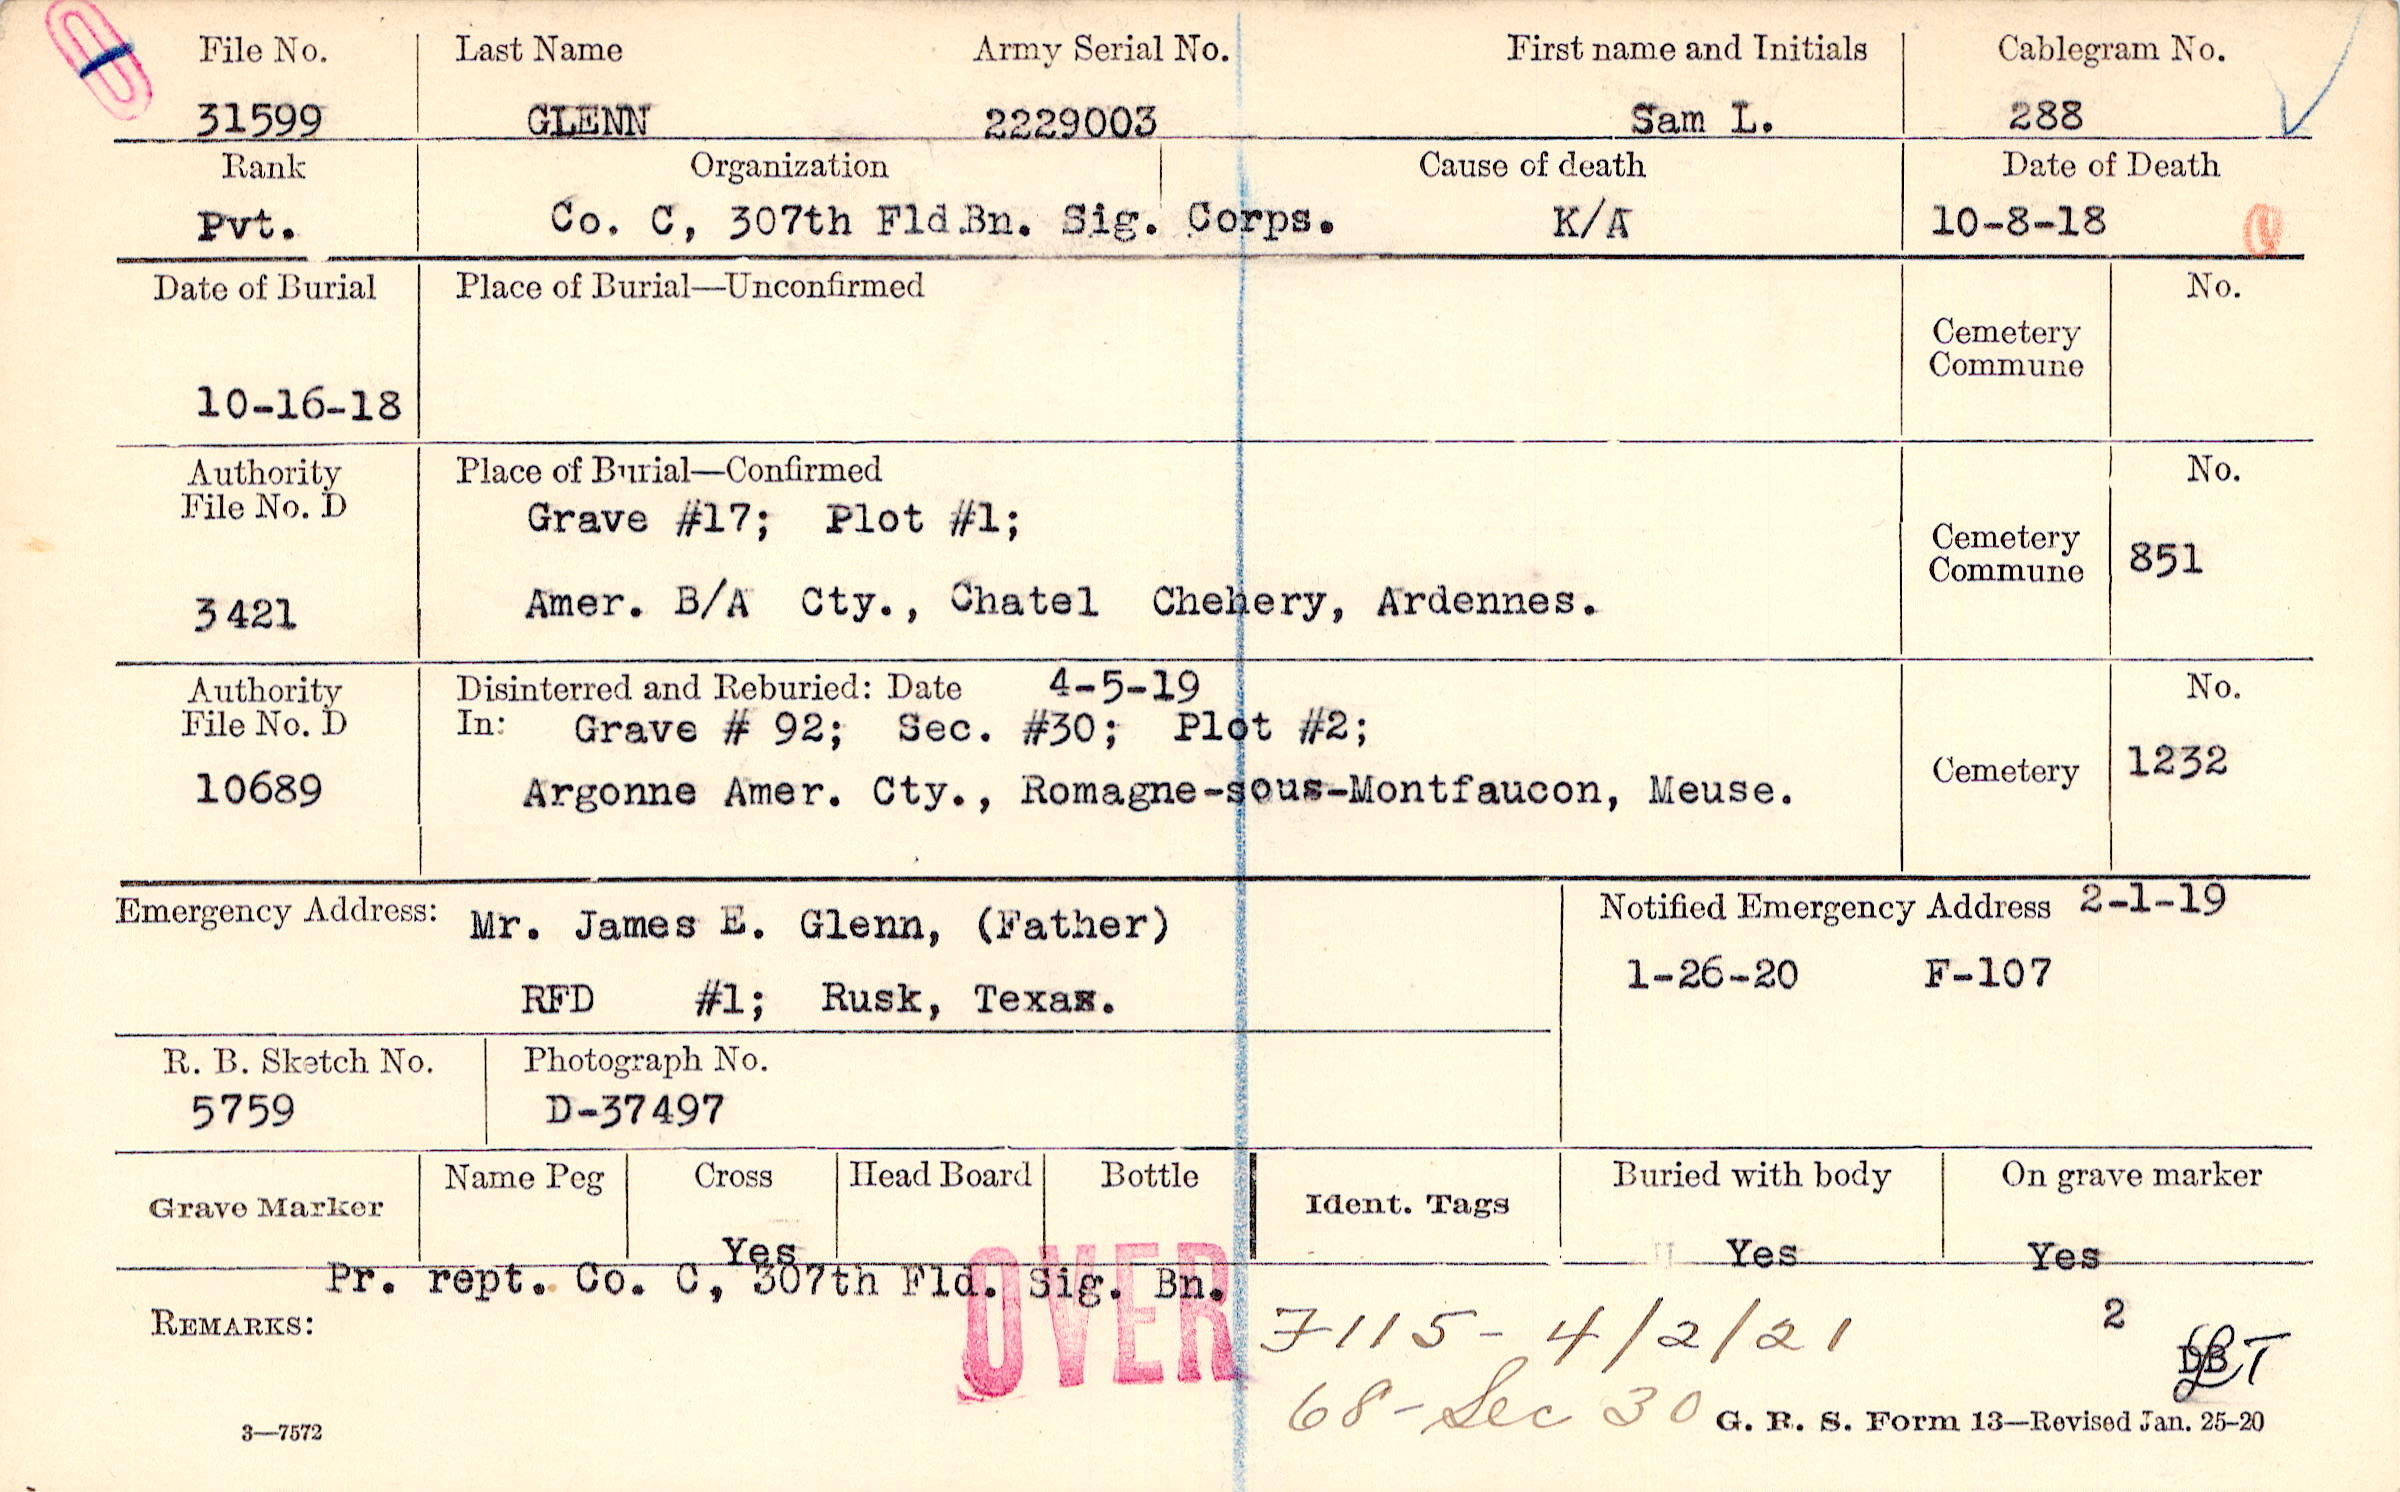 File No. Last Name Army Serial No. First name and Initials Cablegram No.
31599 GLENN 2229003 Sam L. 288
Rank Organization Cause of death Date of Death
Pvt. Co. C, 307th Fld.Bn. Sig. Corps. K/A 10-8-18
Date of Burial Place of Burial—Unconfirmed No.
Cemetery
Commune
10-16-18
Authority Place of Burial—Confirmed No.
File No. D
Grave #17; Plot #1;
Cemetery
Commune 851
3421 Amer. B/A Cty., Chatel Chehery, Ardennes.
Authority Disinterred and Reburied: Date 4-5-19 No.
File No. D In: Grave # 92; Sec. #30; Plot #2;
10689 Argonne Amer. Cty., Romagne-sous-Montfaucon, Meuse. Cemetery 1232
Emergency Address: Mr. James E. Glenn, (Father) Notified Emergency Address 2-1-19
1-26-20 F-107
RFD #1; Rusk, Texas.
R. B. Sketch No. Photograph No.
5759 D-37497
Grave Marker Name Peg Cross Head Board Bottle Ident. Tags Buried with body On grave marker
Yes Yes Yes
Pr. rept. Co. C, 307th Fld. Sig. Bn.
OVER
REMARKS: F115- 4/2/21 2
68-Sec 30
3—7572 G. R. S. Form 13—Revised Jan. 25-20